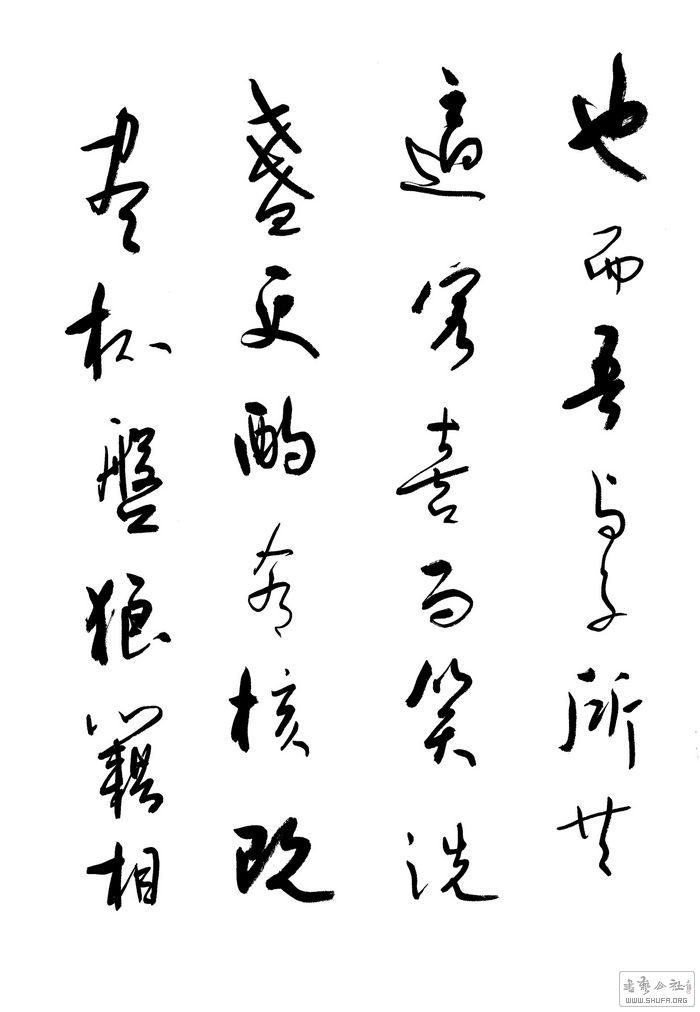 也而吾与子所共
適客喜而笑洗
盞更酌肴核既
尽杯盤狼籍相
書藝公社
WWW.SHUFA.ORG